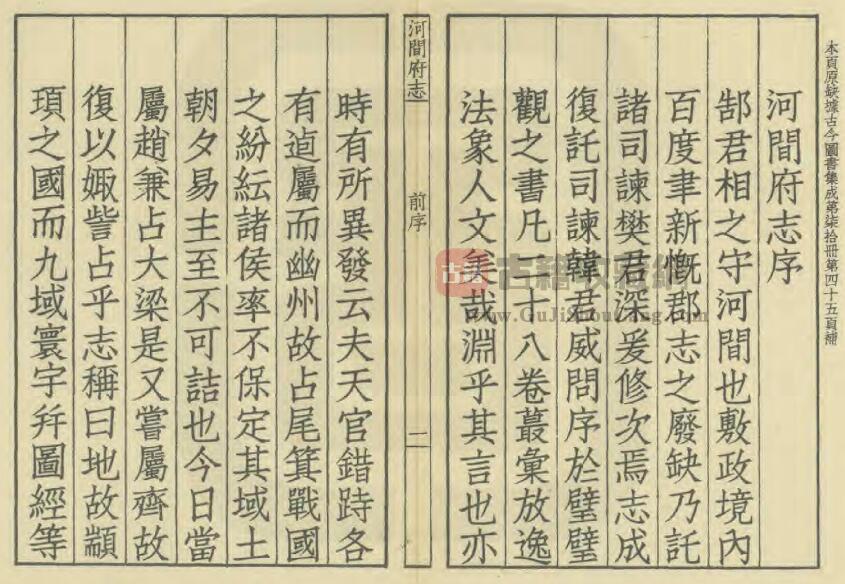 本頁原缺據古今圖書集成第柒拾冊第四十五頁補
河間府志序
郜君相之守河間也敷政境內
百度聿新慨郡志之廢缺乃託
諸司諫樊君深爰修次焉志成
復託司諫韓君威問序於璧璧
觀之書凡二十八卷蕞彙放逸
法象人文隼哉淵乎其言也亦
河間府志
前序
二
時有所異發云夫天官錯跱各
有逌屬而幽州故占尾箕戰國
之紛紜諸侯率不保定其域土
朝夕易主至不可詰也今日當
屬趙兼占大梁是又嘗屬齊故
復以娵訾占乎志稱曰地故顓
頊之國而九域寰宇幷圖經等
古籍 古籍收藏網
www.GuJiShouCang.com